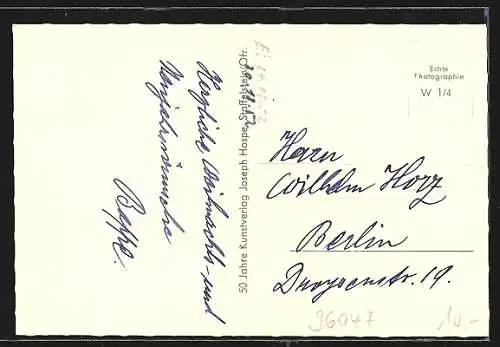 Herzliche Weihnachts- und
Neujahrswünsche
Beppe.
50 Jahre Kunstverlag Joseph Haspe, Staffelstein/Ofr.
Echte
Photographie
W 1/4
Herrn
Wilhelm Horz
Berlin
Droysenstr. 19.
96047
10,-